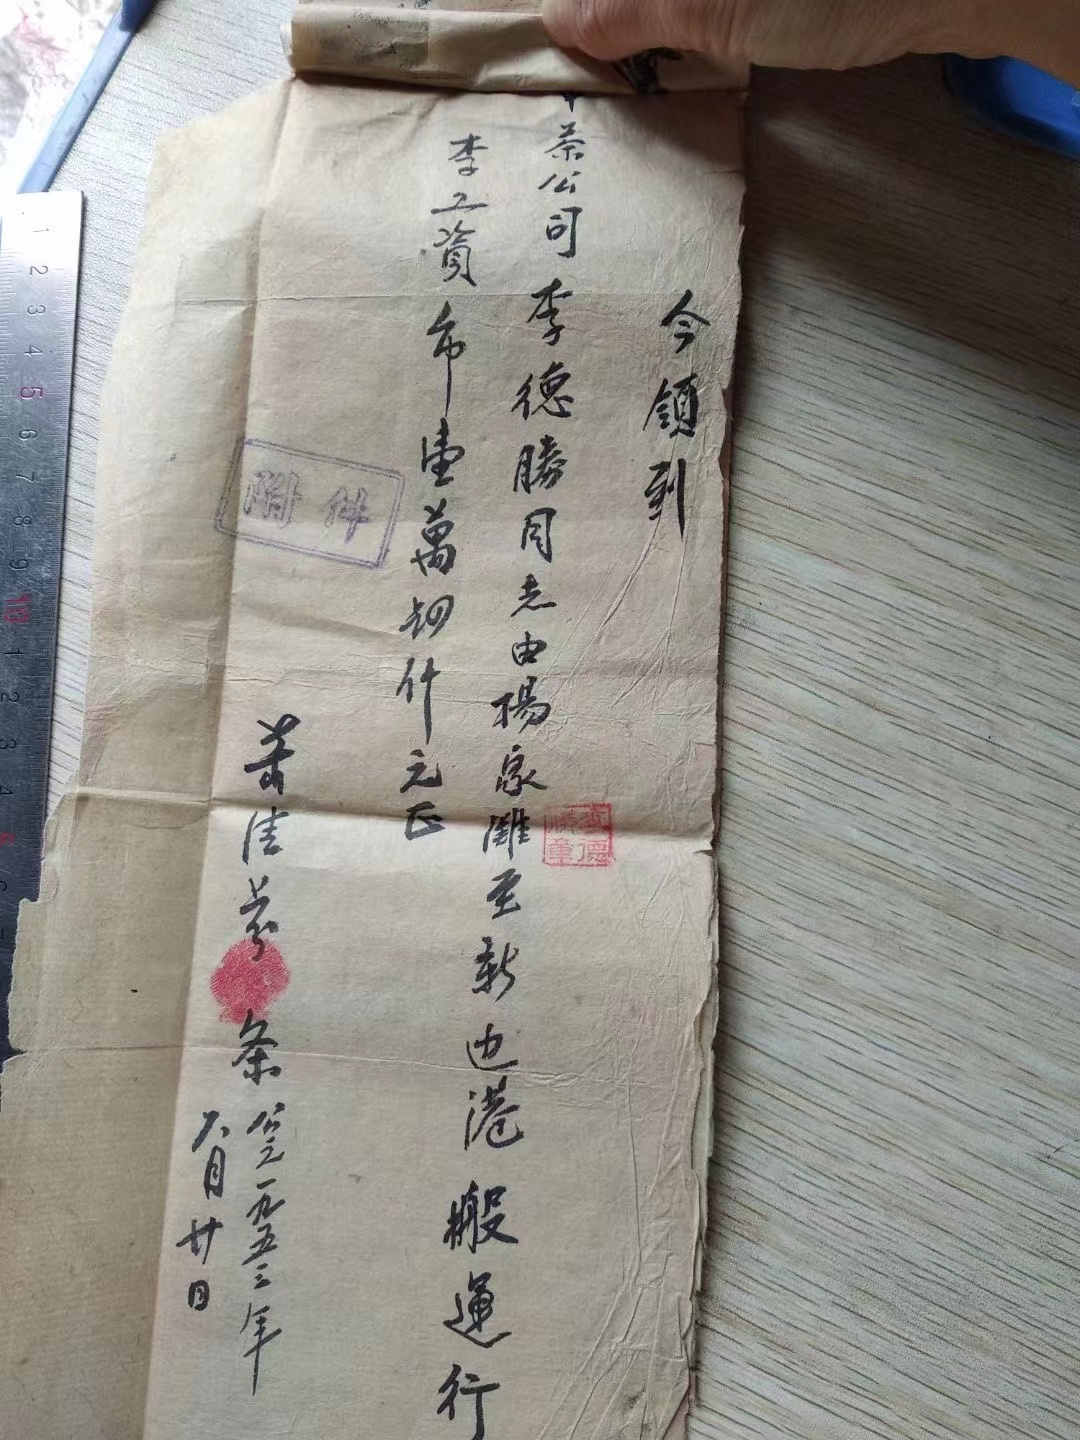 今領到
中茶公司李德勝同志由楊家灘至新边港搬運行
李工資币壹萬捌仟元正
附件
李德勝章
條
公元一九五三年
六月廿日
1 2 3 4 5 6 7 8 9 10 1 2 3 4